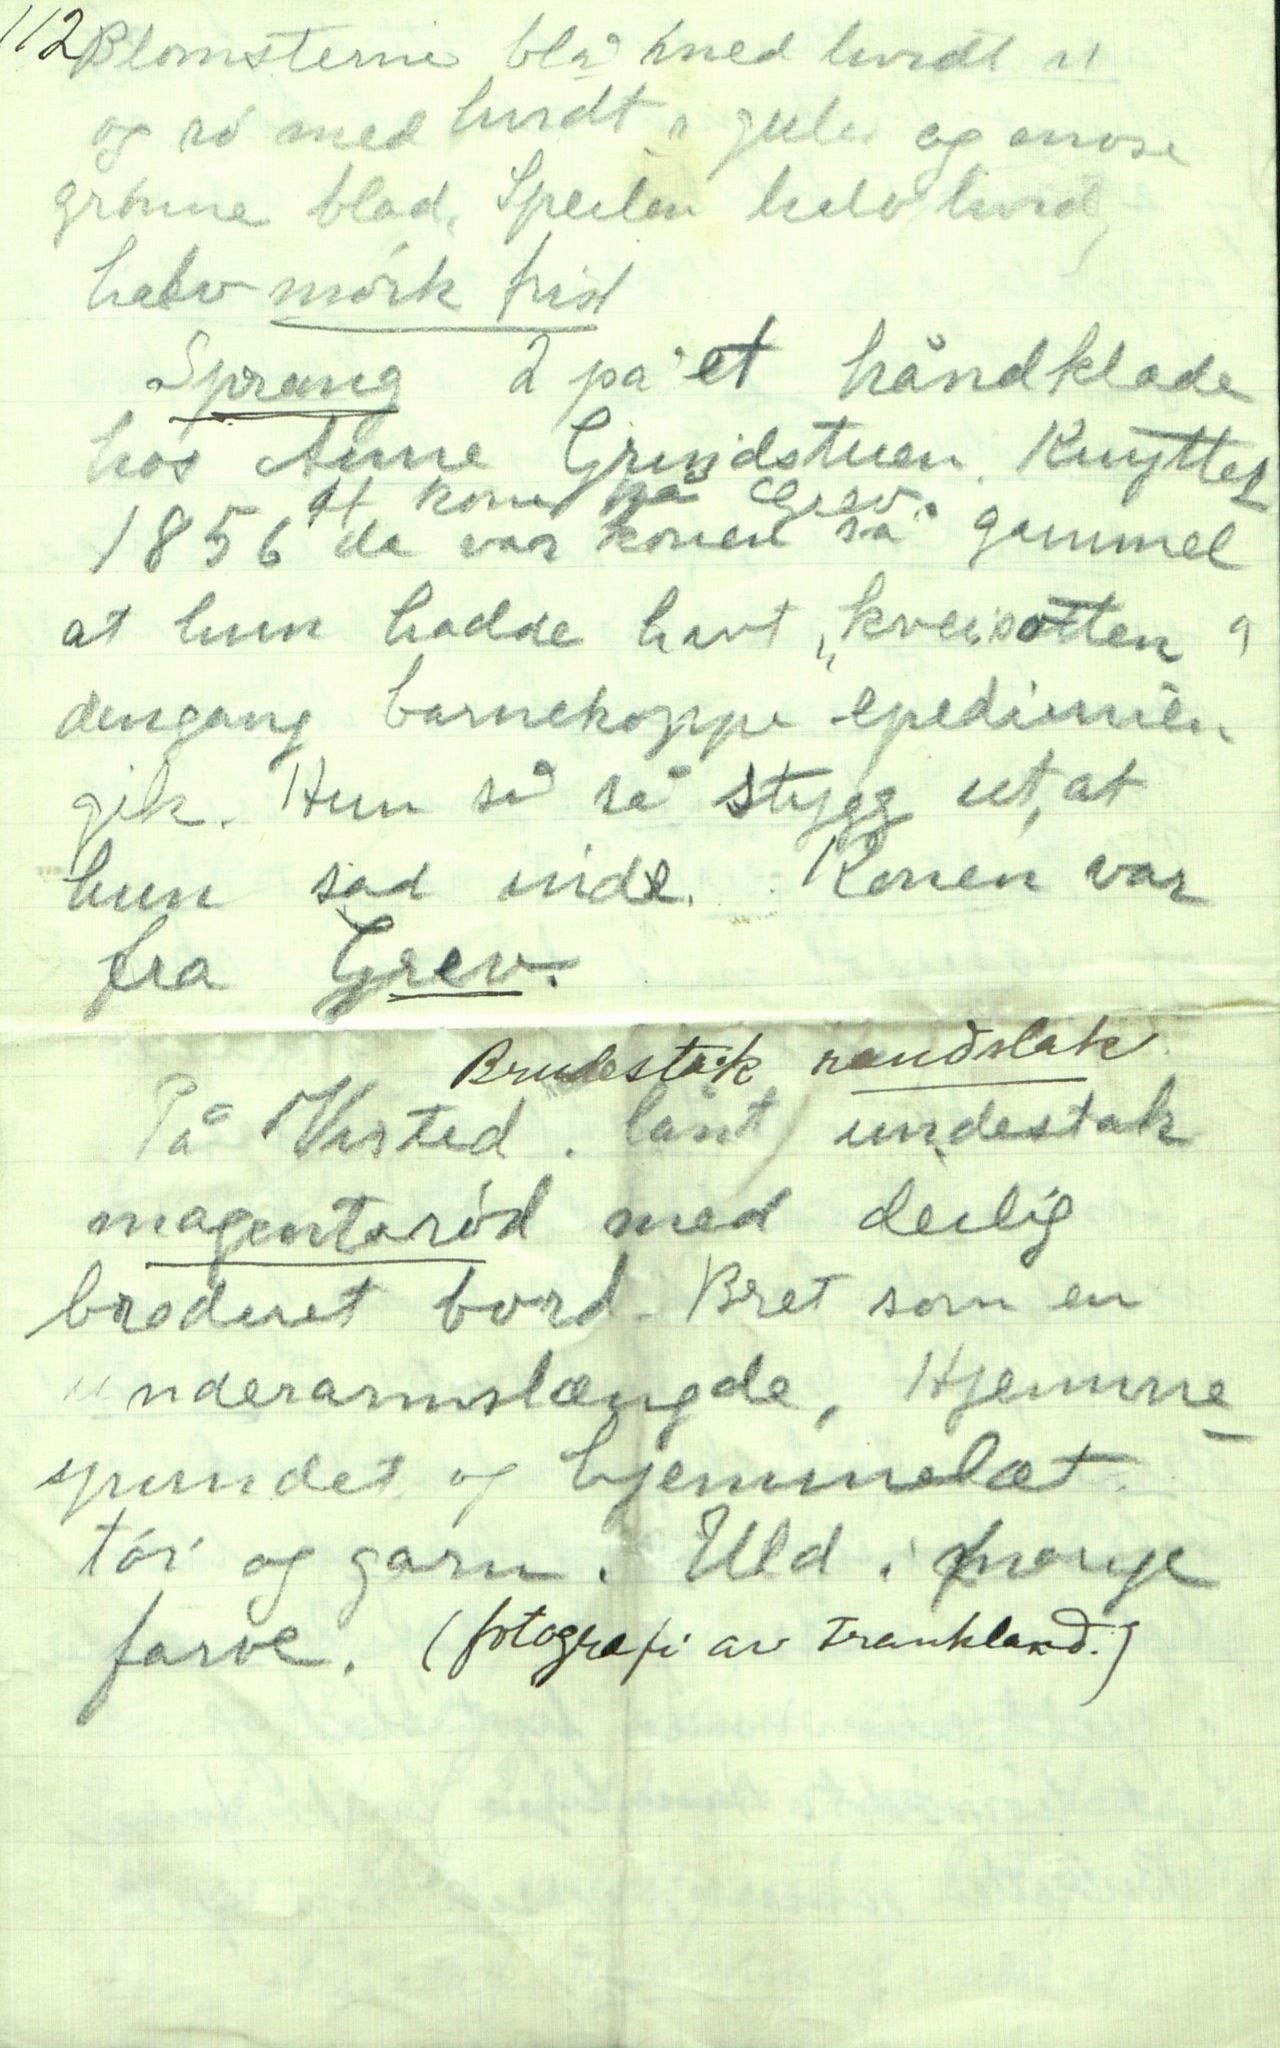 112
Blomsterne blå med hvidt i
og rö med hvidt i gule og mose
grönne blad. Speilen halv hvid,
halv mörk
Sprang 2 på et håndklade
hos Anne Grindstuen. Knyttet
af kone på Grev.
1856 da var konen så gammel
at hun hadde havt „kveisotten"
dengang barnekoppe epedimien
gik. Hun så så stygg ut, at
hun sad inde. Konen var
fra Grev.
Brudestak randslak
På Visted. lånt undestak
magentaröd med deilig
broderet bord. Bret som en
underarmslængde, Hjemme
spundet og hjemmelæt
töi og garn. Uld i mange
farve. (fotografi av Frankland.)